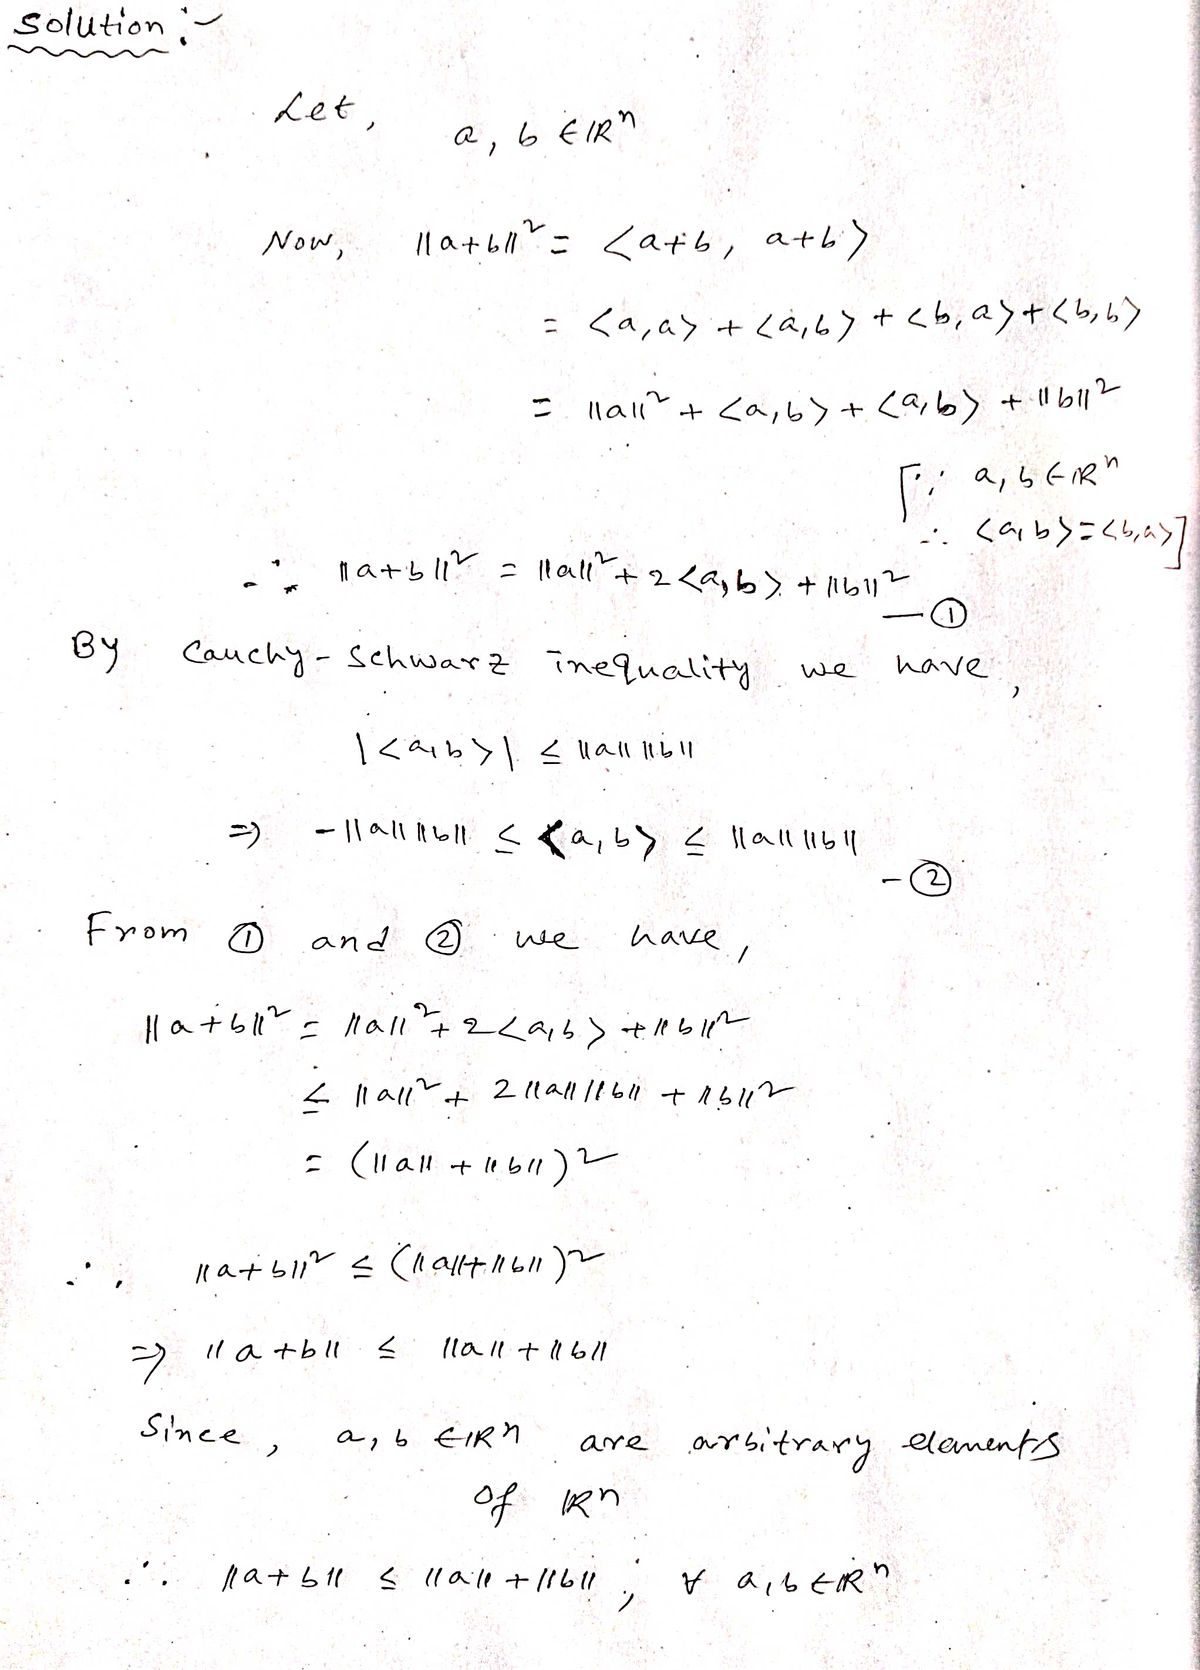 Solution :-
Let, a, b ∈ ℝⁿ
Now, ||a+b||² = <a+b, a+b>
= <a,a> + <a,b> + <b,a> + <b,b>
= ||a||² + <a,b> + <a,b> + ||b||²
[∵ a, b ∈ ℝⁿ
∴ <a,b> = <b,a>]
∴ ||a+b||² = ||a||² + 2<a,b> + ||b||² — ①
By Cauchy-Schwarz inequality we have,
|<a,b>| ≤ ||a|| ||b||
⇒ -||a|| ||b|| ≤ <a,b> ≤ ||a|| ||b|| - ②
From ① and ② we have,
||a+b||² = ||a||² + 2<a,b> + ||b||²
≤ ||a||² + 2||a|| ||b|| + ||b||²
= (||a|| + ||b||)²
∴ ||a+b||² ≤ (||a||+||b||)²
⇒ ||a+b|| ≤ ||a|| + ||b||
Since, a, b ∈ ℝⁿ are arbitrary elements
of ℝⁿ
∴ ||a+b|| ≤ ||a|| + ||b|| ; ∀ a, b ∈ ℝⁿ